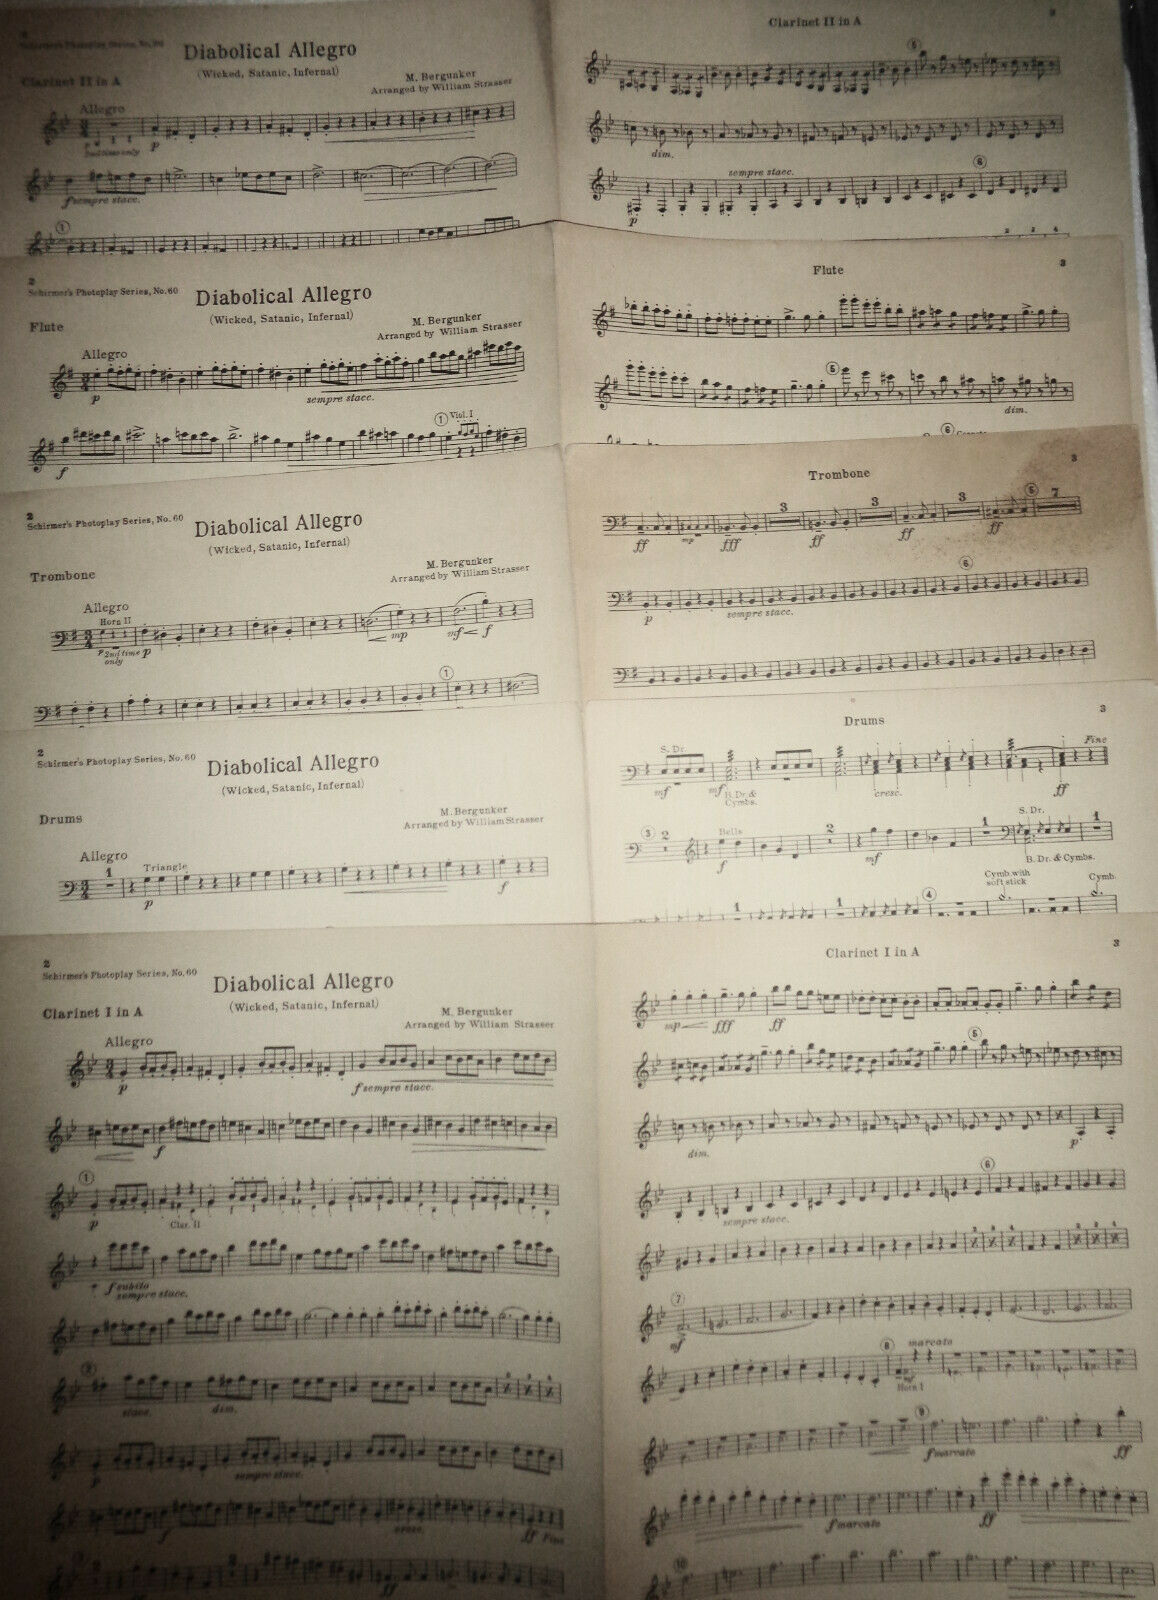 2
Schirmer's Photoplay Series, No. 60
Diabolical Allegro
(Wicked, Satanic, Infernal)
Clarinet II in A
M. Bergunker
Arranged by William Strasser
Allegro
2nd time only
p
f sempre stacc.
1
Clarinet II in A
3
5
dim.
sempre stacc.
6
p
2
Schirmer's Photoplay Series, No. 60
Diabolical Allegro
(Wicked, Satanic, Infernal)
Flute
M. Bergunker
Arranged by William Strasser
Allegro
p
sempre stacc.
1 Viol. I
f
Flute
3
5
dim.
6
2
Schirmer's Photoplay Series, No. 60
Diabolical Allegro
(Wicked, Satanic, Infernal)
Trombone
M. Bergunker
Arranged by William Strasser
Allegro
Horn II
p 2nd time only
p
mp
mf f
1
Trombone
3
3 3 3 5 7
ff mp fff ff ff ff
6
p
sempre stacc.
2
Schirmer's Photoplay Series, No. 60
Diabolical Allegro
(Wicked, Satanic, Infernal)
Drums
M. Bergunker
Arranged by William Strasser
Allegro
1
Triangle
p
f
Drums
3
S. Dr.
Fine
mf
mf B. Dr. & Cymbs.
cresc.
ff
3 2
Bells
2
1
S. Dr.
1
f
mf
B. Dr. & Cymbs.
Cymb. with soft stick
Cymb.
1 1 4
2
Schirmer's Photoplay Series, No. 60
Diabolical Allegro
(Wicked, Satanic, Infernal)
Clarinet I in A
M. Bergunker
Arranged by William Strasser
Allegro
p
f sempre stacc.
f
1
p
Clar. II
f subito
sempre stacc.
2
stacc.
dim.
p
sempre stacc.
f
cresc.
ff Fine
ff
Clarinet I in A
3
mp fff ff
5
dim.
p
6
sempre stacc.
7
mf
8
marcato
Horn I
9
f marcato
ff
f marcato
ff
10